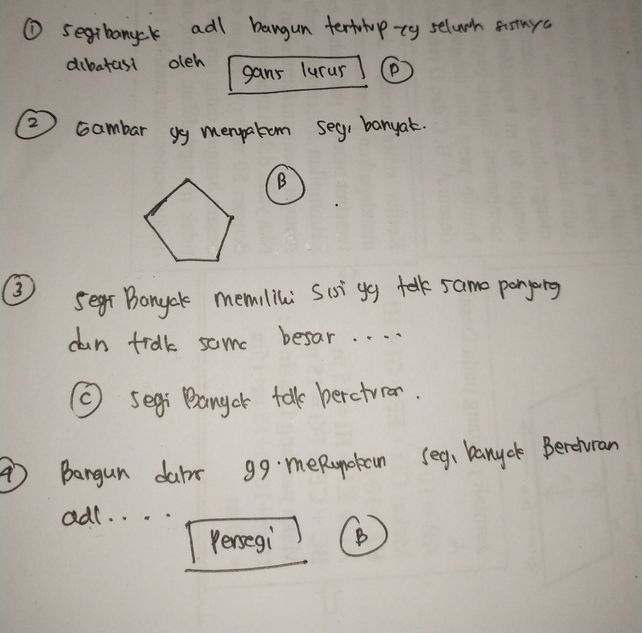 ① segibanyak adl bangun tertutup yg seluruh sisinya
dibatasi oleh garis lurus Ⓓ
② Gambar yg merupakan segi banyak.
Ⓑ
③ segi Banyak memiliki sisi yg tdk sama panjang
dan tidk sama besar ....
Ⓒ segi Banyak tdk beraturan.
④ Bangun datar yg merupakan segi banyak Beraturan
adl.....
Persegi Ⓑ